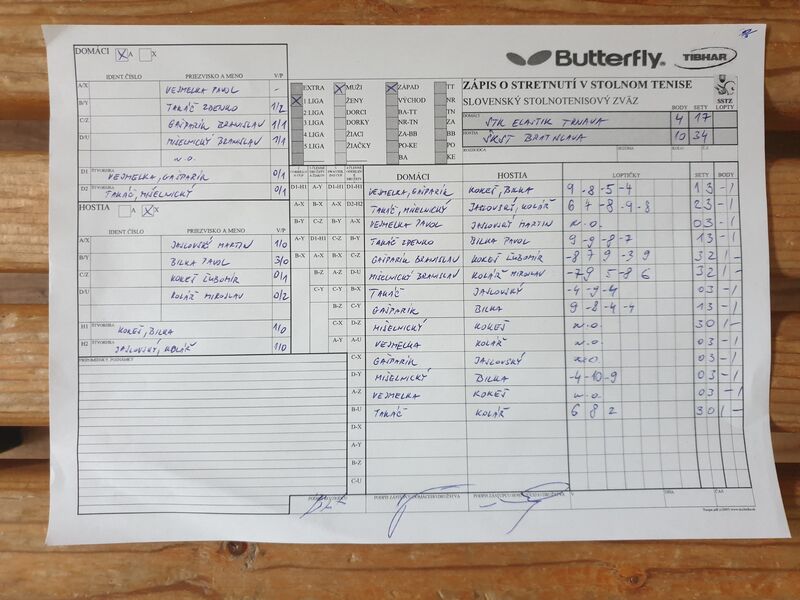 DOMÁCI X A X
IDENT.ČÍSLO PRIEZVISKO A MENO V/P
A/X VEJMELKA PAVOL -
B/Y TAKÁČ ZDENKO 1/2
C/Z GAŠPARÍK BRANISLAV 1/1
D/U MIŠELNICKÝ BRANISLAV 1/1
W.O.
D1 ŠTVORHRA VEJMELKA, GAŠPARÍK 0/1
D2 ŠTVORHRA TAKÁČ, MIŠELNICKÝ 0/1
HOSTIA A X X
IDENT.ČÍSLO PRIEZVISKO A MENO V/P
A/X JASLOVSKÝ MARTIN 1/0
B/Y BILKA PAVOL 3/0
C/Z KOKEŠ ĽUBOMÍR 0/1
D/U KOLÁŘ MIROSLAV 0/2
H1 ŠTVORHRA KOKEŠ, BILKA 1/0
H2 ŠTVORHRA JASLOVSKÝ, KOLÁŘ 1/0
PRIPOMIENKY, POZNÁMKY
Butterfly TIBHAR
EXTRA X MUŽI X ZÁPAD TT
X 1 LIGA ŽENY VÝCHOD NR
2 LIGA DORCI BA-TT TN
3 LIGA DORKY NR-TN ZA
4 LIGA ŽIACI ZA-BB BB
5 LIGA ŽIAČKY PO-KE PO
BA KE
ZÁPIS O STRETNUTÍ V STOLNOM TENISE
SLOVENSKÝ STOLNOTENISOVÝ ZVÄZ
SSTZ
BODY SETY LOPTY
DOMÁCI STK ELASTIK TRNAVA 4 17
HOSTIA ŠKST BRATISLAVA 10 34
ROZHODCA SEZÓNA KOLO
DOMÁCI HOSTIA LOPTIČKY SETY BODY
D1-H1 A-Y D1-H1 D1-H1 VEJMELKA, GAŠPARÍK KOKEŠ, BILKA 9 -8 -5 -4 1 3 - 1
A-X B-X A-X D2-H2 TAKÁČ, MIŠELNICKÝ JASLOVSKÝ, KOLÁŘ 6 4 -8 -9 -8 2 3 - 1
B-Y C-Z B-Y A-X VEJMELKA PAVOL JASLOVSKÝ MARTIN w.o. 0 3 - 1
A-Y D1-H1 C-Z B-Y TAKÁČ ZDENKO BILKA PAVOL 9 -9 -8 -7 1 3 - 1
B-X A-X B-X C-Z GAŠPARÍK BRANISLAV KOKEŠ ĽUBOMÍR -8 7 9 -3 9 3 2 1 -
B-Z A-Z D-U MIŠELNICKÝ BRANISLAV KOLÁŘ MIROSLAV -7 9 5 -8 6 3 2 1 -
C-Y C-Y B-X TAKÁČ JASLOVSKÝ -4 -9 -4 0 3 - 1
B-Z C-Y GAŠPARÍK BILKA 9 -8 -4 -4 1 3 - 1
C-X D-Z MIŠELNICKÝ KOKEŠ w.o. 3 0 1 -
A-Y A-U VEJMELKA KOLÁŘ w.o. 0 3 - 1
C-X GAŠPARÍK JASLOVSKÝ w.o 0 3 - 1
D-Y MIŠELNICKÝ BILKA -4 -10 -9 0 3 - 1
A-Z VEJMELKA KOKEŠ w.o. 0 3 - 1
B-U TAKÁČ KOLÁŘ 6 8 2 3 0 1 -
D-X
A-Y
B-Z
C-U
PODPIS ROZHODCU PODPIS ZÁSTUPCU DOMÁCEHO DRUŽSTVA PODPIS ZÁSTUPCU HOSŤUJÚCEHO DRUŽSTVA V DŇA ČAS